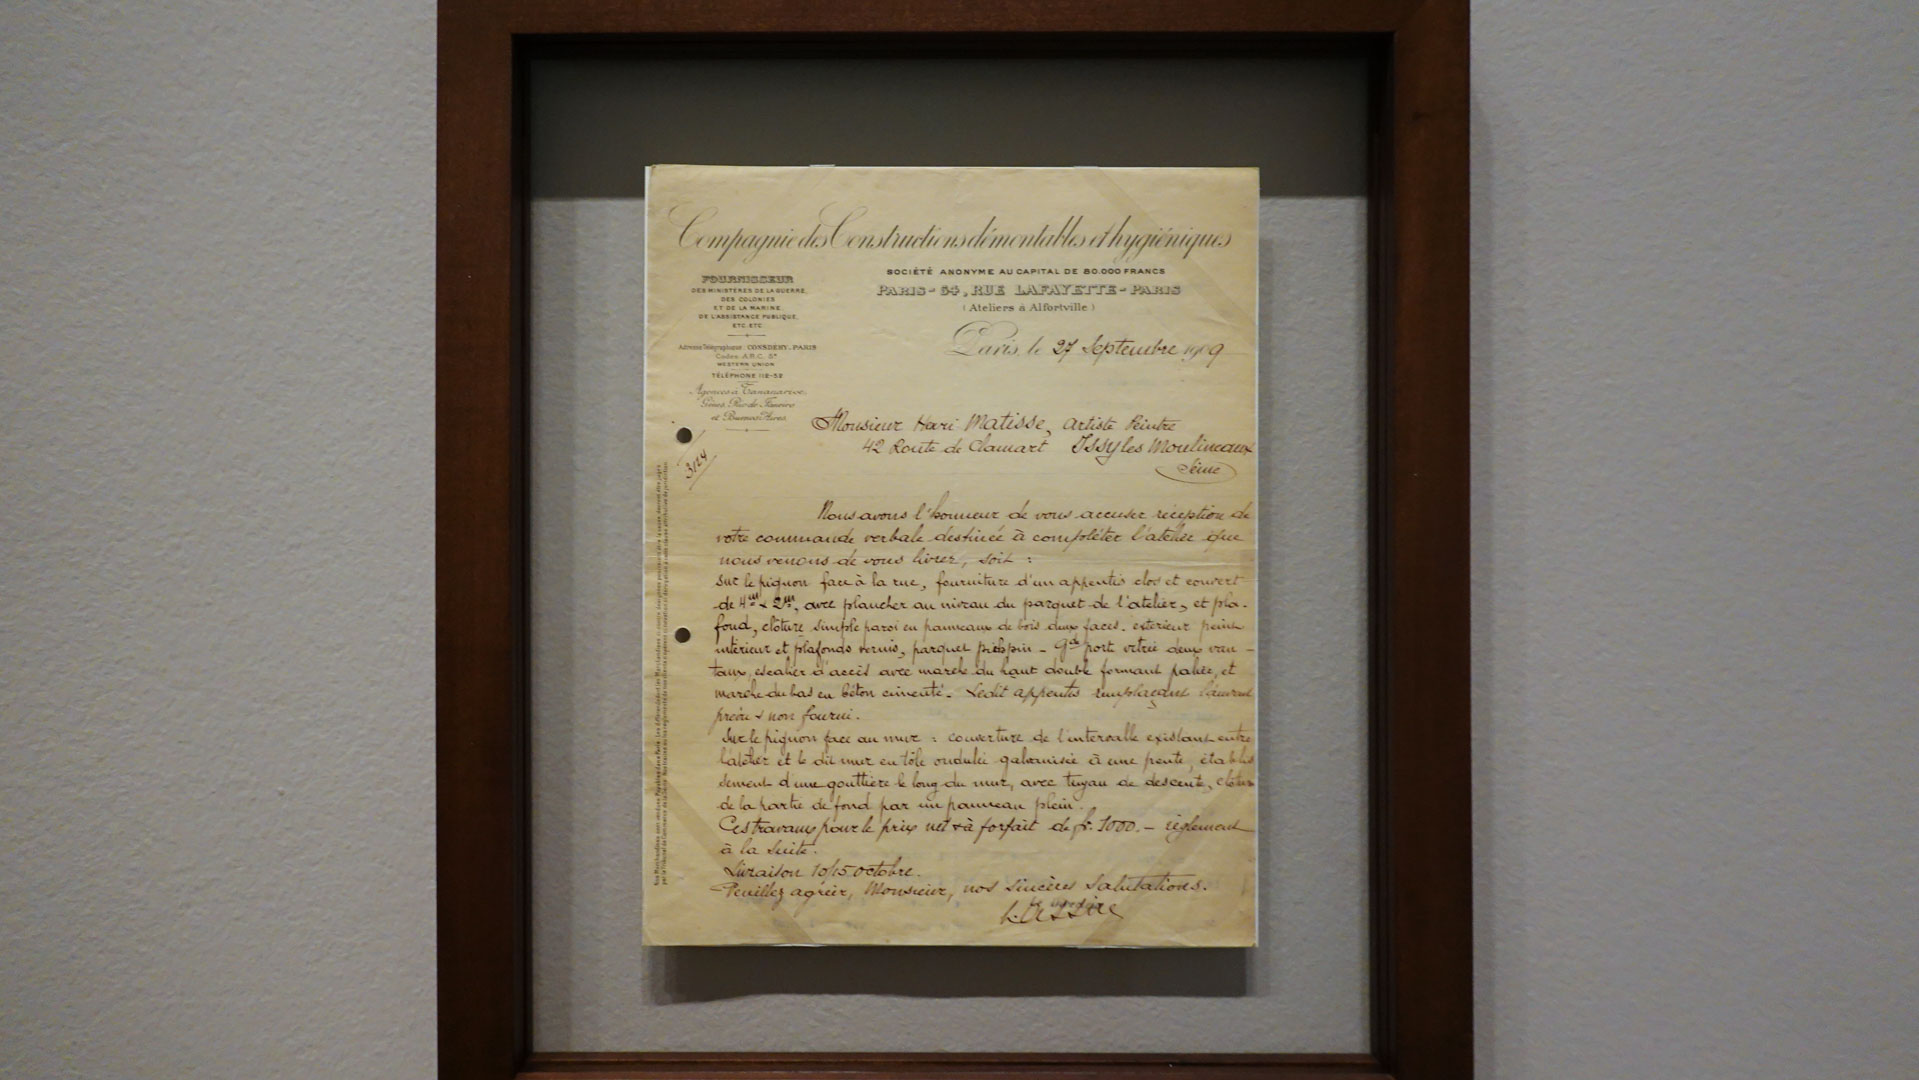 Compagnie des Constructions démontables et hygiéniques
FOURNISSEUR
DES MINISTÈRES DE LA GUERRE,
DES COLONIES
ET DE LA MARINE
DE L'ASSISTANCE PUBLIQUE,
ETC. ETC
Adresse Télégraphique: CONSDÉHY-PARIS
Codes A.B.C. 5e
WESTERN UNION
TÉLÉPHONE 112-52
Agences à Tananarive,
Gênes, Rio de Janeiro
et Buenos Aires
SOCIÉTÉ ANONYME AU CAPITAL DE 80.000 FRANCS
PARIS - 64, RUE LAFAYETTE - PARIS
(Ateliers à Alfortville)
Paris, le 27 Septembre 1909
3124
Monsieur Henri Matisse, Artiste Peintre
42 Route de Clamart Issy les Moulineaux
Seine
Nous avons l'honneur de vous accuser réception de
votre commande verbale destinée à compléter l'atelier que
nous venons de vous livrer, soit :
Sur le pignon face à la rue, fourniture d'un appentis clos et couvert
de 4m x 2m, avec plancher au niveau du parquet de l'atelier, et pla-
fond, clôture simple paroi en panneaux de bois deux faces. extérieur peint
intérieur et plafonds vernis, parquet pitchpin - Gde port vitrée deux van-
taux, escalier d'accès avec marche du haut double formant palier, et
marche du bas en béton cimenté. Ledit appentis remplaçant l'auvent
prévu & non fourni.
Sur le pignon face au mur : couverture de l'intervalle existant entre
l'atelier et le dit mur en tôle ondulée galvanisée à une pente, établis
sement d'une gouttière le long du mur, avec tuyau de descente, clôture
de la partie de fond par un panneau plein.
Ces travaux pour le prix net & à forfait de fr. 1000. - règlement
à la suite.
Livraison 10/15 octobre.
Veuillez agréer, Monsieur, nos sincères salutations.